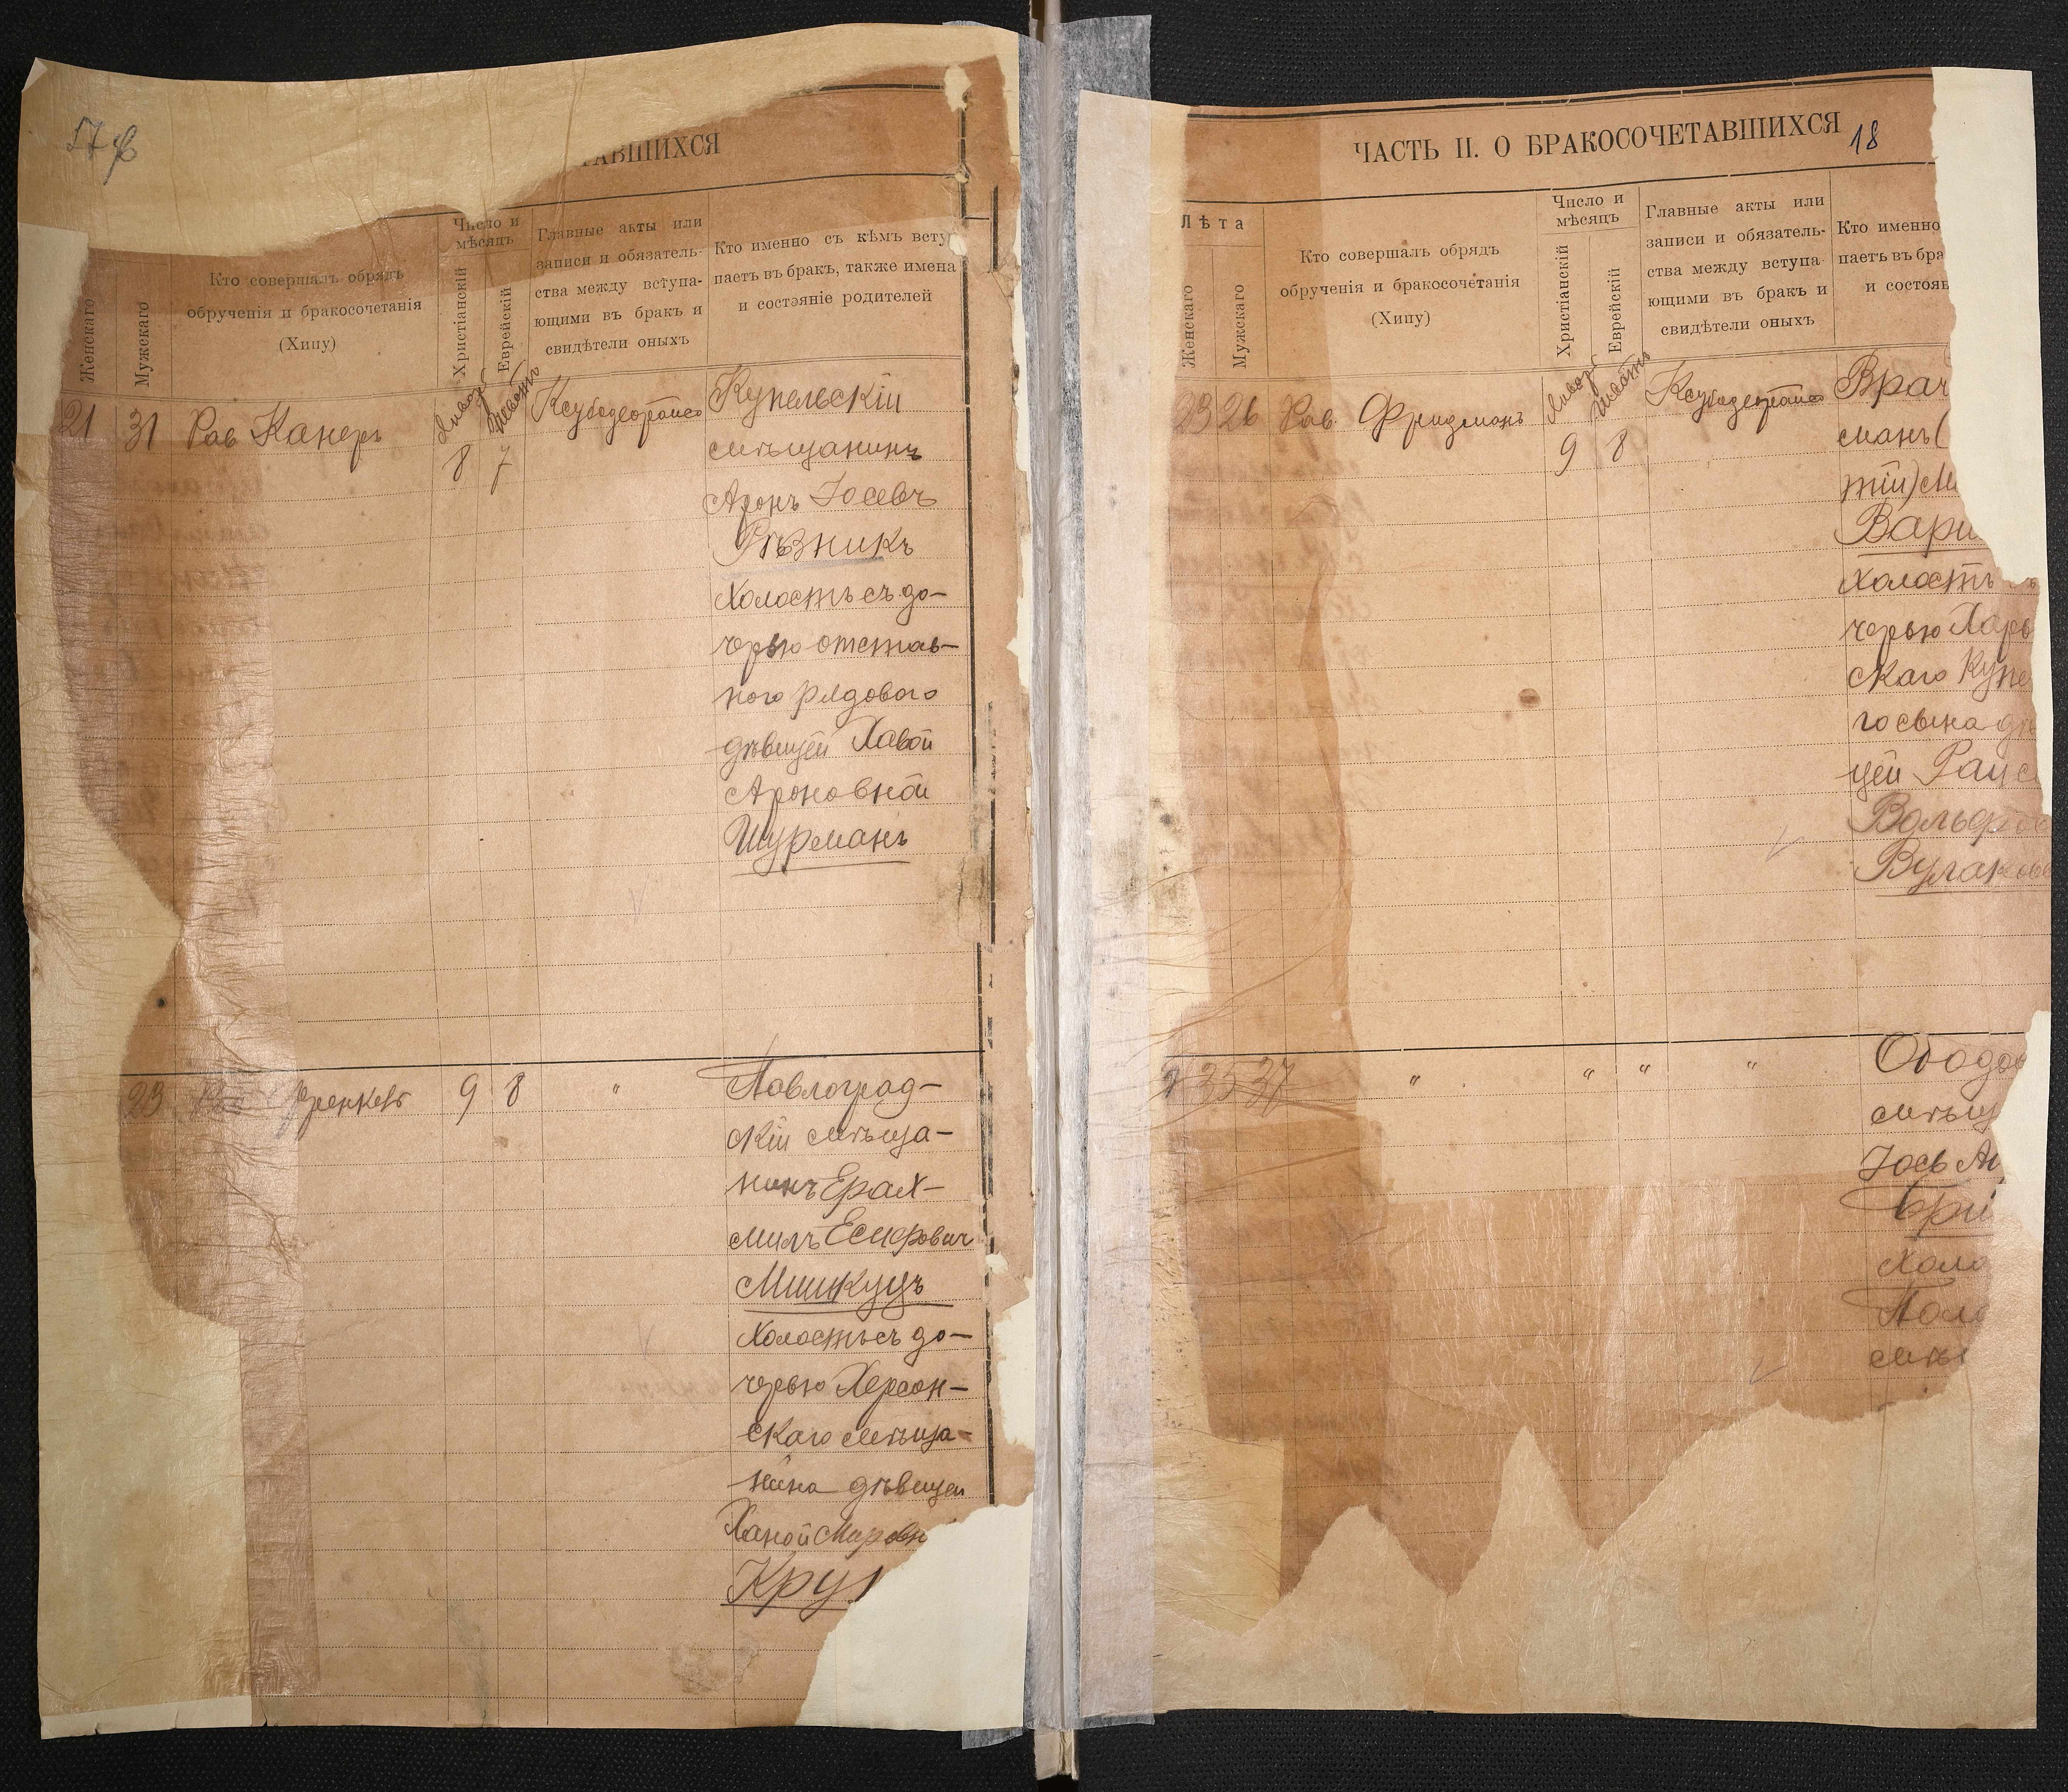 ТАВШИХСЯ
Женскаго
Мужескаго
Кто совершалъ обрядъ
обрученія и бракосочетанія
(Хипу)
Число и
мѣсяцъ
Христіанскій
Еврейскій
Главные акты или
записи и обязатель-
ства между вступа-
ющими въ бракъ и
свидѣтели оныхъ
Кто именно съ кѣмъ всту
паетъ въ бракъ, также имена
и состояніе родителей
21 31 Рав Канеръ
8 7
Купельскій
мѣщанинъ
Аронъ Іосевъ
Рѣзникъ
холостъ съ до-
черью отстав-
ного рядового
дѣвицей Хавой
Ароновной
Шурманъ
23 Френкель 9 8 "
Павлоград-
скій мѣща-
нинъ Ерах-
милъ
Мишкуцъ
Холостъ съ до-
черью Херсон-
скаго мѣща-
нина дѣвицей
Ханой
Круг
ЧАСТЬ II. О БРАКОСОЧЕТАВШИХСЯ
18
Лѣта
Женскаго
Мужскаго
Кто совершалъ обрядъ
обрученія и бракосочетанія
(Хипу)
Число и
мѣсяцъ
Христіанскій
Еврейскій
Главные акты или
записи и обязатель-
ства между вступа-
ющими въ бракъ и
свидѣтели оныхъ
Кто именно
паетъ въ бра
и состоян
23 26 Рав. Фридманъ
9 8
Врач
манъ (
тій) М
Вари
Холостъ
черью Харь
скаго Купе
го сына дѣ
цей Раис
Вольфов
Булаков
35 37 " " " "
Ободов
мѣщ
Іось
Бри
холо
Поло
мѣщ